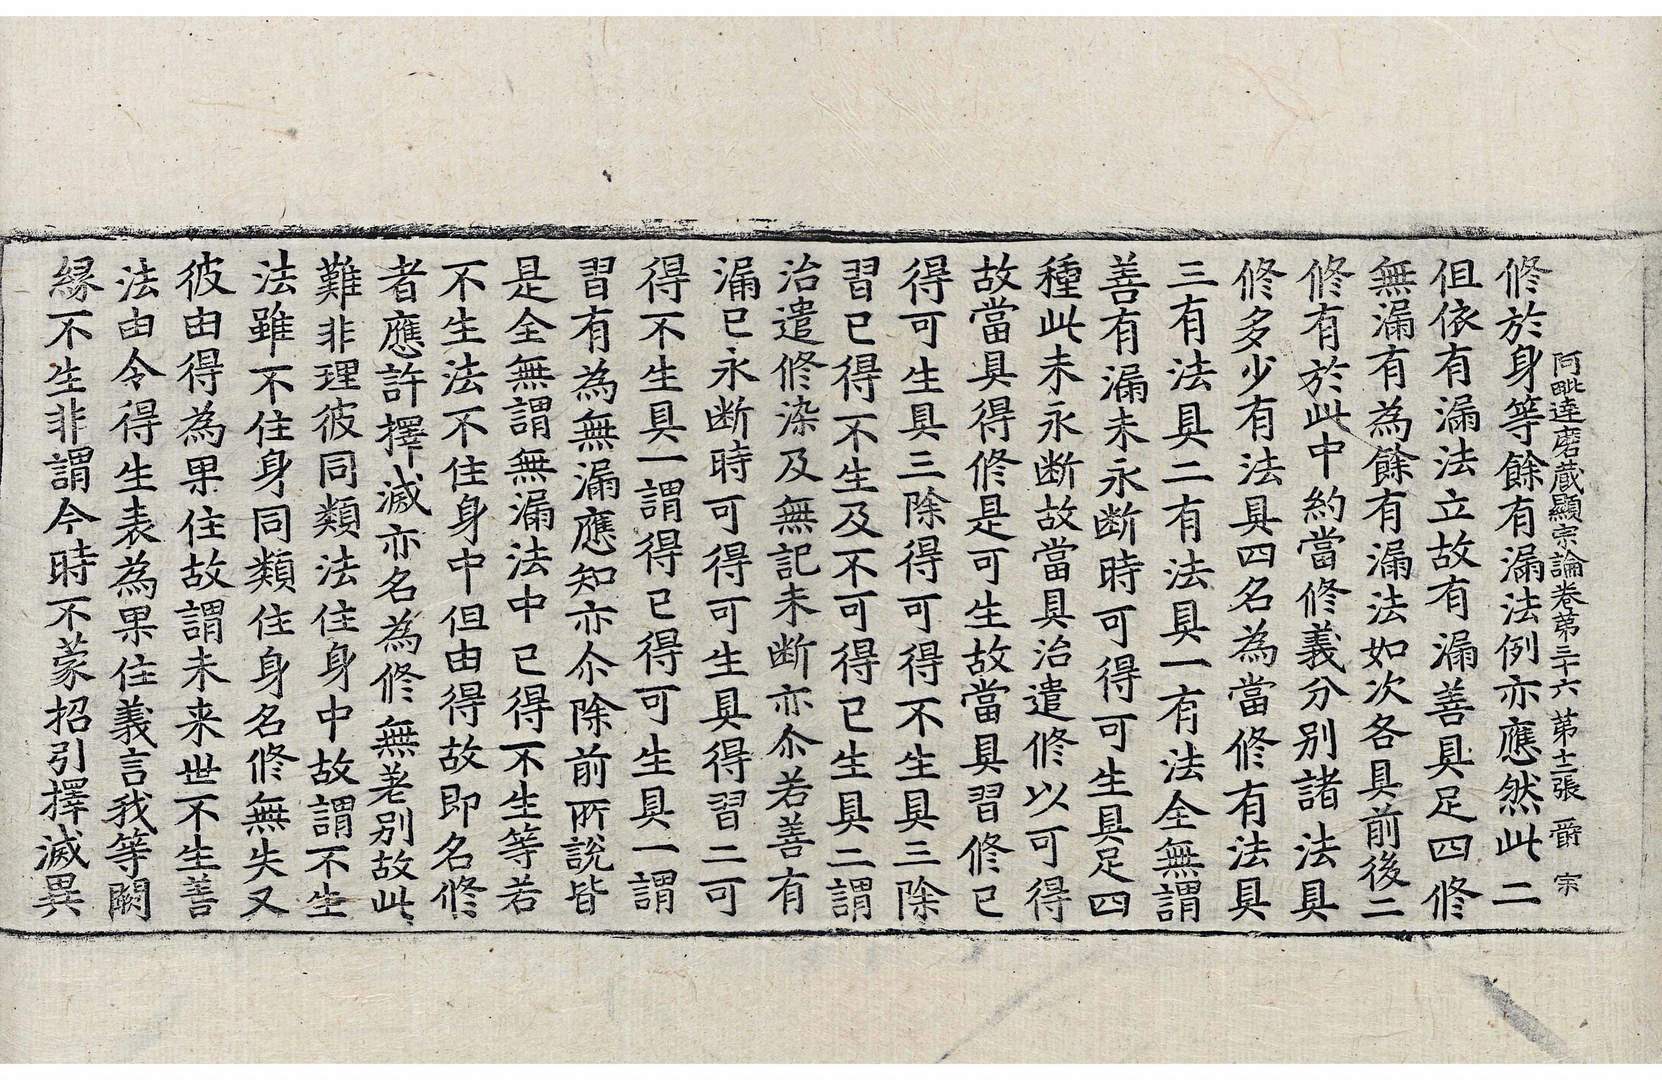 阿毗達磨蔵顯宗論卷第三十六 第十二張 爵 宗
修於身等餘有漏法例亦應然此二
但依有漏法立故有漏善具足四修
無漏有為餘有漏法如次各具前後二
修有於此中約當修義分別諸法具
修多少有法具四名為當修有法具
三有法具二有法具一有法全無謂
善有漏未永斷時可得可生具足四
種此未永斷故當具治遣修以可得
故當具得修是可生故當具習修已
得可生具三除得可得不生具三除
習已得不生及不可得已生具二謂
治遣修染及無記未斷亦尒若善有
漏已永斷時可得可生具得習二可
得不生具一謂得已得可生具一謂
習有為無漏應知亦尒除前所說皆
是全無謂無漏法中已得不生等若
不生法不住身中但由得故即名修
者應許擇滅亦名為修無差別故此
難非理彼同類法住身中故謂不生
法雖不住身同類住身名修無失又
彼由得為果住故謂未来世不生善
法由令得生表為果住義言我等闕
緣不生非謂今時不蒙招引擇滅異